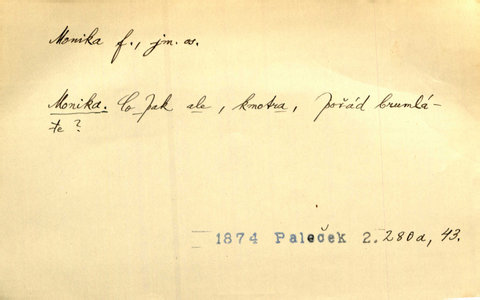 Monika f., jm. os.
Monika. Co pak ale, knotra, pořád brumlá-
te?
1874 Paleček 2. 280a, 43.